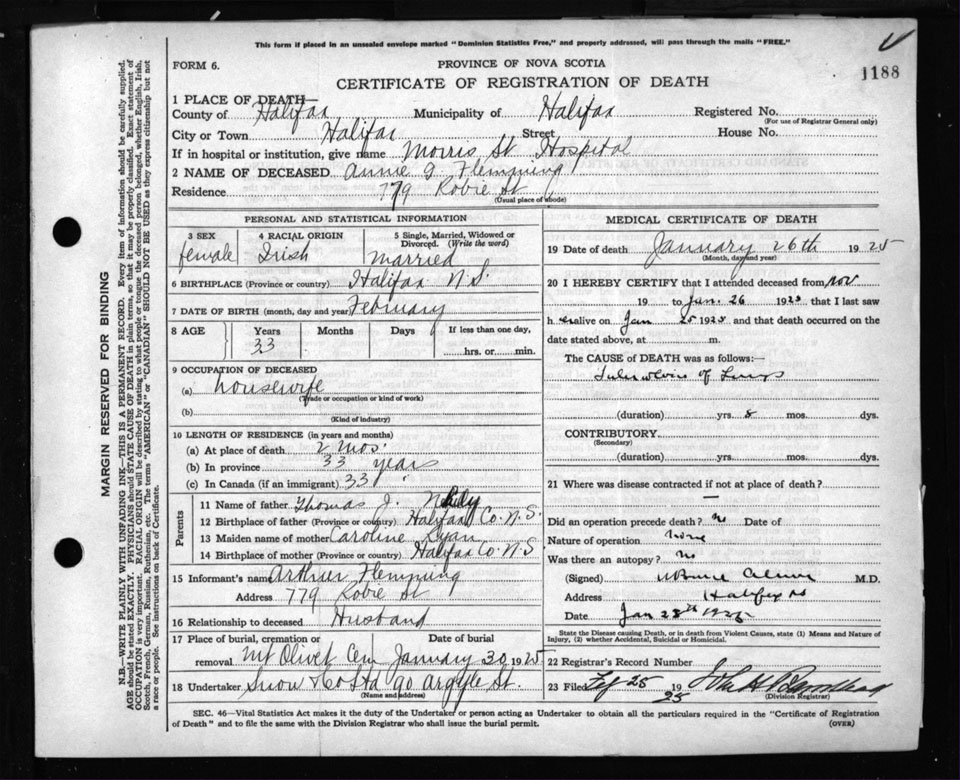 This form if placed in an unsealed envelope marked "Dominion Statistics Free," and properly addressed, will pass through the mails "FREE."
FORM 6.
PROVINCE OF NOVA SCOTIA
1188
CERTIFICATE OF REGISTRATION OF DEATH
1 PLACE OF DEATH—
County of Halifax Municipality of Halifax Registered No.
(For use of Registrar General only)
City or Town Halifax Street House No.
If in hospital or institution, give name Morris St Hospital
2 NAME OF DECEASED Annie G Flemming
Residence 779 Robie St
(Usual place of abode)
PERSONAL AND STATISTICAL INFORMATION
3 SEX 4 RACIAL ORIGIN 5 Single, Married, Widowed or Divorced. (Write the word)
female Irish married
6 BIRTHPLACE (Province or country) Halifax N.S.
7 DATE OF BIRTH (month, day and year) February
8 AGE Years Months Days If less than one day,
33 hrs. or min.
9 OCCUPATION OF DECEASED
(a) housewife
(Trade or occupation or kind of work)
(b)
(Kind of industry)
10 LENGTH OF RESIDENCE (in years and months)
(a) At place of death 2 mos.
(b) In province 33 years
(c) In Canada (if an immigrant) 33
Parents
11 Name of father Thomas J.
12 Birthplace of father (Province or country) Halifax Co. N.S.
13 Maiden name of mother Caroline Ryan
14 Birthplace of mother (Province or country) Halifax Co. N.S
15 Informant's name Arthur Flemming
Address 779 Robie St
16 Relationship to deceased Husband
17 Place of burial, cremation or removal Mt Olivet Cem Date of burial January 30 1925
18 Undertaker Snow & Co Ltd 90 Argyle St.
(Name and address)
MEDICAL CERTIFICATE OF DEATH
19 Date of death January 26th 1925
(Month, day and year)
20 I HEREBY CERTIFY that I attended deceased from Nov
19 to Jan. 26 1925 that I last saw
her alive on Jan 25 1925 and that death occurred on the
date stated above, at m.
The CAUSE OF DEATH was as follows:—
of Lungs
(duration) yrs. 8 mos. dys.
CONTRIBUTORY
(Secondary)
(duration) yrs. mos. dys.
21 Where was disease contracted if not at place of death?
—
Did an operation precede death? no Date of
Nature of operation none
Was there an autopsy? no
(Signed) M.D.
Address Halifax NS
Date Jan 28th 1925
State the Disease causing Death, or in death from Violent Causes, state (1) Means and Nature of Injury, (2) whether Accidental, Suicidal or Homicidal.
22 Registrar's Record Number
23 Filed 25 1925
(Division Registrar)
SEC. 46—Vital Statistics Act makes it the duty of the Undertaker or person acting as Undertaker to obtain all the particulars required in the "Certificate of Registration
of Death" and to file the same with the Division Registrar who shall issue the burial permit.
(OVER)
MARGIN RESERVED FOR BINDING
N.B.—WRITE PLAINLY WITH UNFADING INK—THIS IS A PERMANENT RECORD. Every item of information should be carefully supplied.
AGE should be stated EXACTLY. PHYSICIANS should STATE CAUSE OF DEATH in plain terms, so that it may be properly classified. Exact statement of
OCCUPATION is very important. RACIAL ORIGIN will be described by stating to what people or tongue the deceased person belonged, whether English, Irish,
Scotch, French, German, Russian, Ruthenian, etc. The terms "AMERICAN" or "CANADIAN" SHOULD NOT BE USED as they express citizenship but not
a race or people. See instructions on back of Certificate.